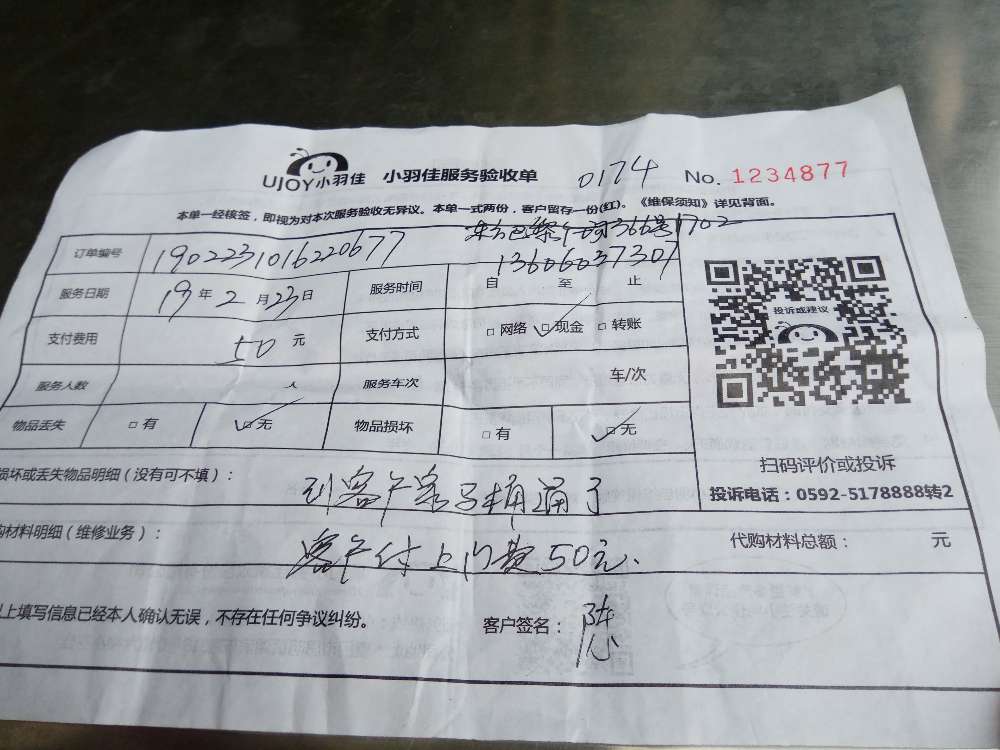 UJOY小羽佳 小羽佳服务验收单 0174 No. 1234877
本单一经核签，即视为对本次服务验收无异议。本单一式两份，客户留存一份(红)。《维保须知》详见背面。
366号1702
订单编号 190223101622067​7
13606037307
服务日期 19年2月23日 服务时间 自 至 止
支付费用 50元 支付方式 □网络 ☑现金 □转账
服务人数 人 服务车次 车/次
物品丢失 □有 ☑无 物品损坏 □有 ☑无
投诉或建议
扫码评价或投诉
投诉电话：0592-5178888转2
损坏或丢失物品明细（没有可不填）：
到客户家子桶通了
购材料明细（维修业务）： 代购材料总额： 元
客户付上门费50元.
上填写信息已经本人确认无误，不存在任何争议纠纷。 客户签名：